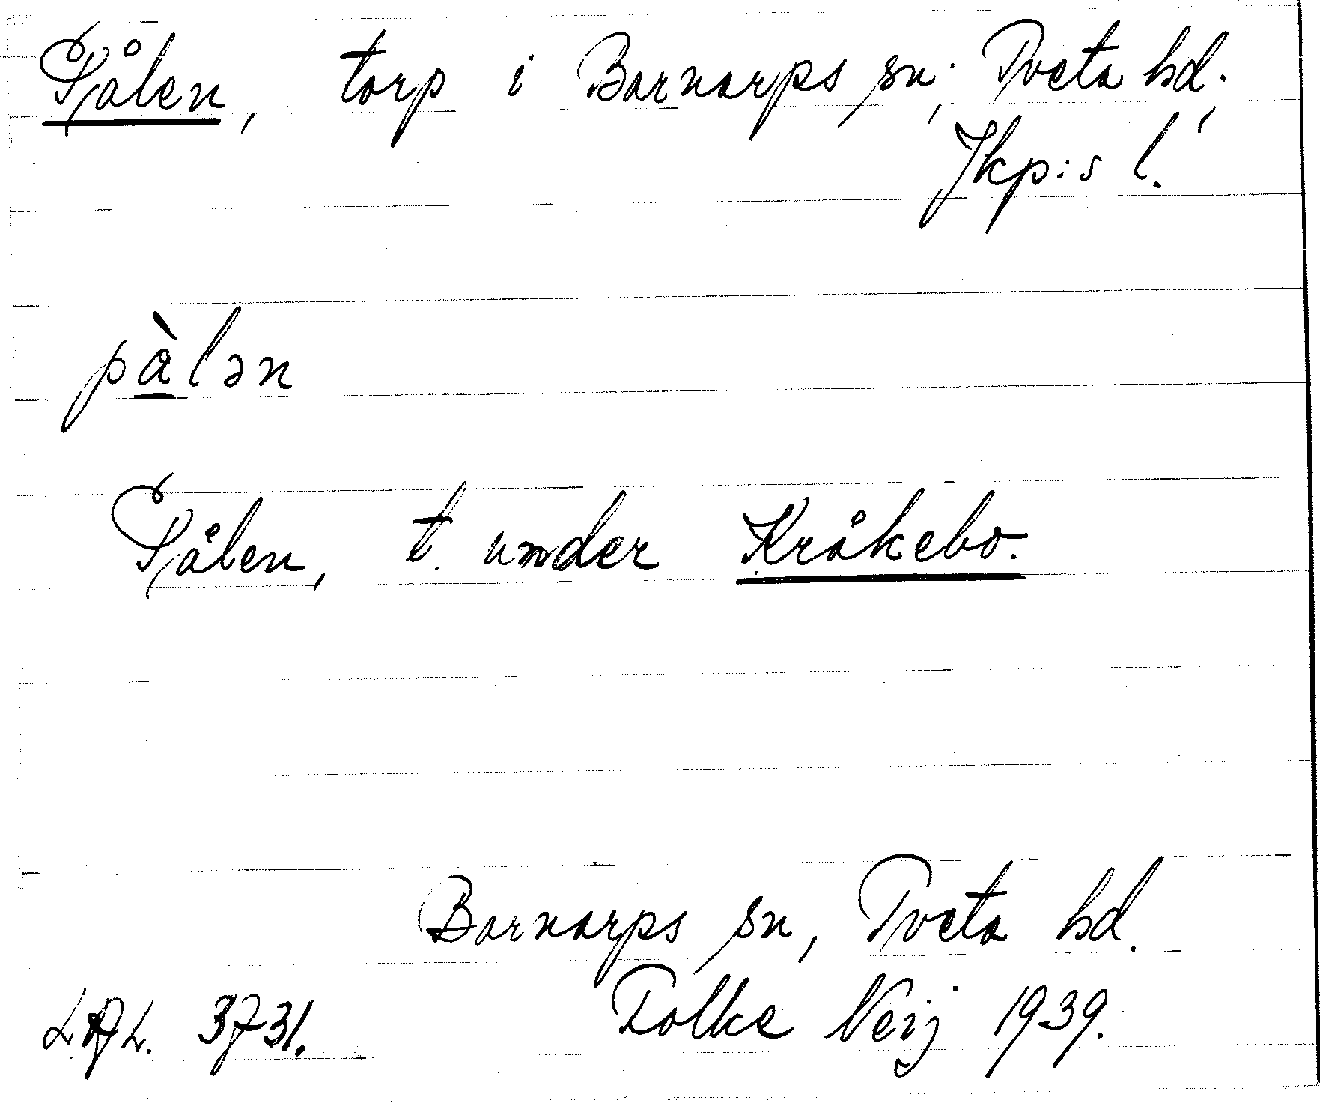 Pålen, torp i Barnarps sn, Tveta hd,
Jkp:s l.
pàlən
Pålen, t. under Kråkebo.
Barnarps sn, Tveta hd.
Folke Neij 1939.
3731.